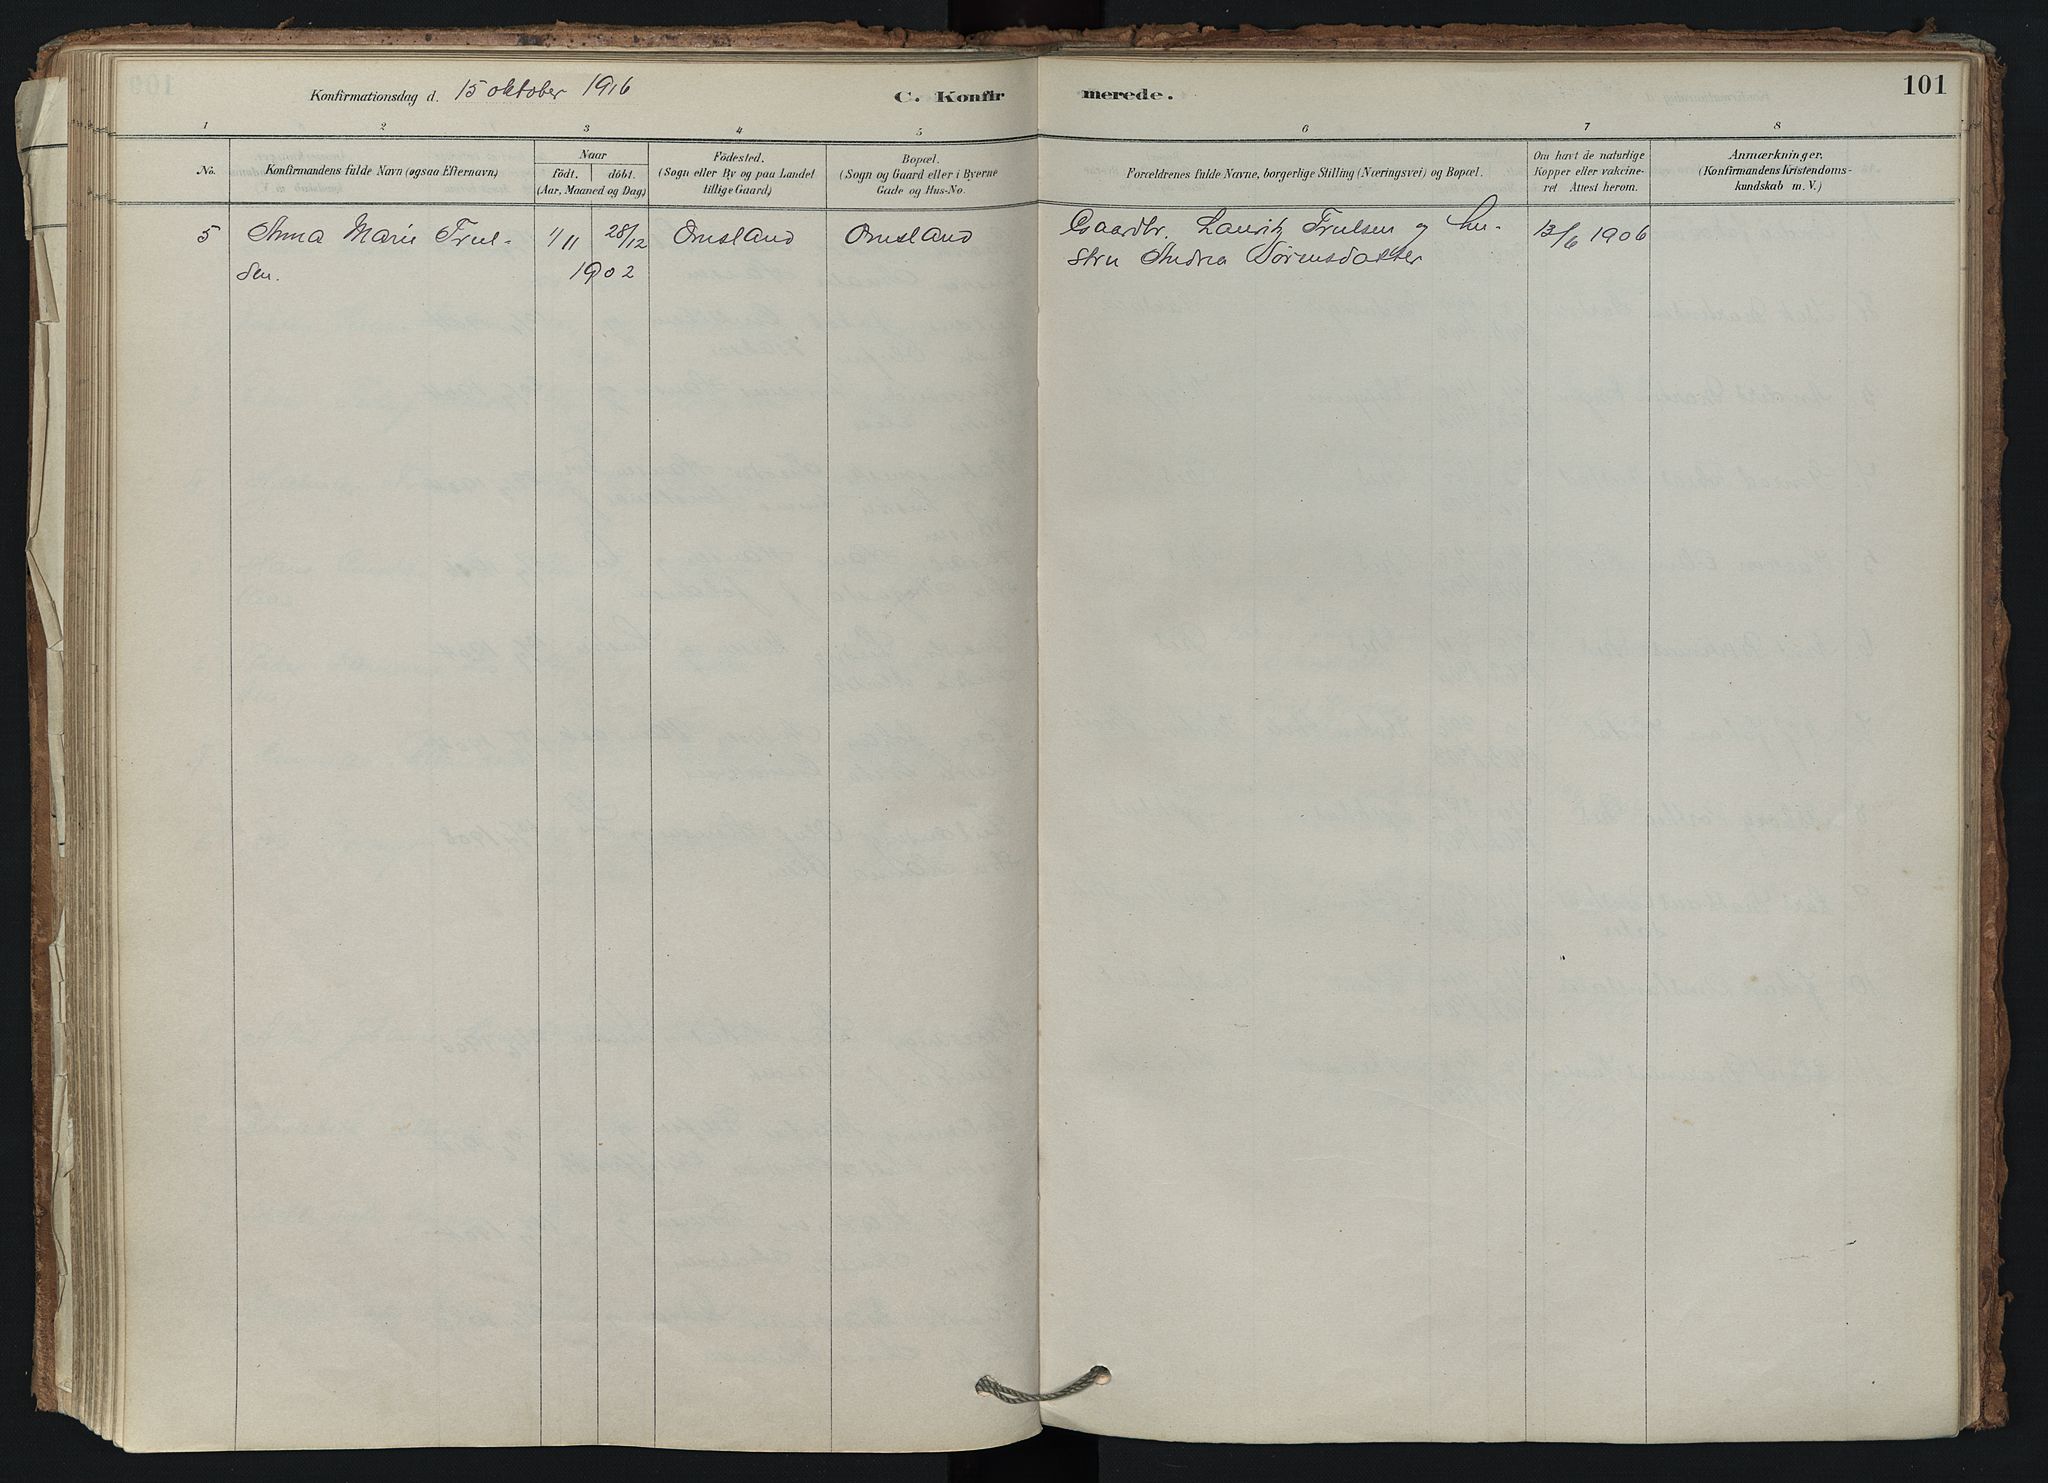 Konfirmationsdag d. 15 oktober 1916
C. Konfirmerede.
101
1 2 3 4 5 6 7 8
No.
Konfirmandens fulde Navn (ogsaa Efternavn)
Naar
Født. døbt.
(Aar, Maaned og Dag)
Fødested.
(Sogn eller By og paa Landet
tillige Gaard)
Bopæl.
(Sogn og Gaard eller i Byerne
Gade og Hus-No.
Forældrenes fulde Navne, borgerlige Stilling (Næringsvei) og Bopæl.
Om havt de naturlige
Kopper eller vakcine-
ret Attest herom.
Anmærkninger.
(Konfirmandens Kristendoms-
kundskab m. V.)
5 Anna Marie Trul- 1/11 28/12 Omsland Omsland Gaardbr. Lauritz Trulsen og hu- 13/6 1906
sen. 1902 stru Andrea Sørensdatter